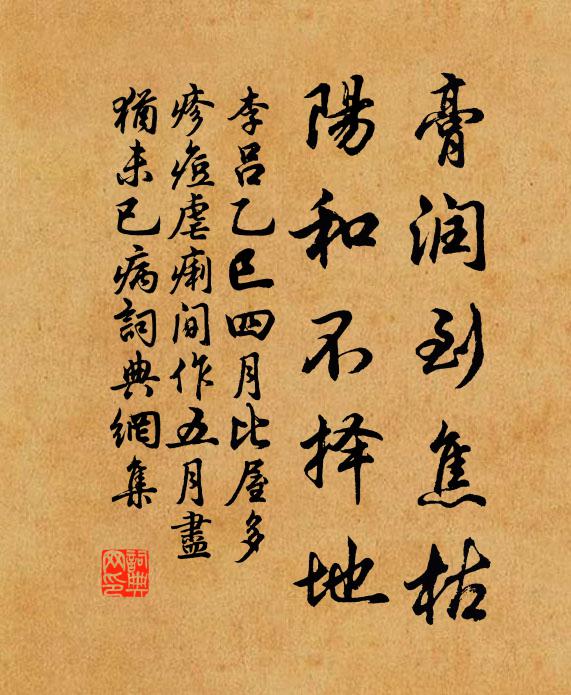 膏润到焦枯
陽和不择地
李吕乙巳四月比屋多
疹痘虐痢间作五月盡
猶未已病詞典網集
詞典
网印